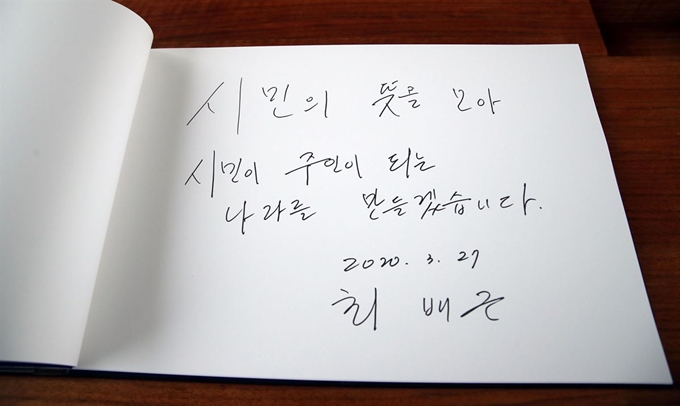 시민의 뜻를 모아
시민이 주인이 되는
나라를 만들겠습니다.
2020. 3. 27
최배근